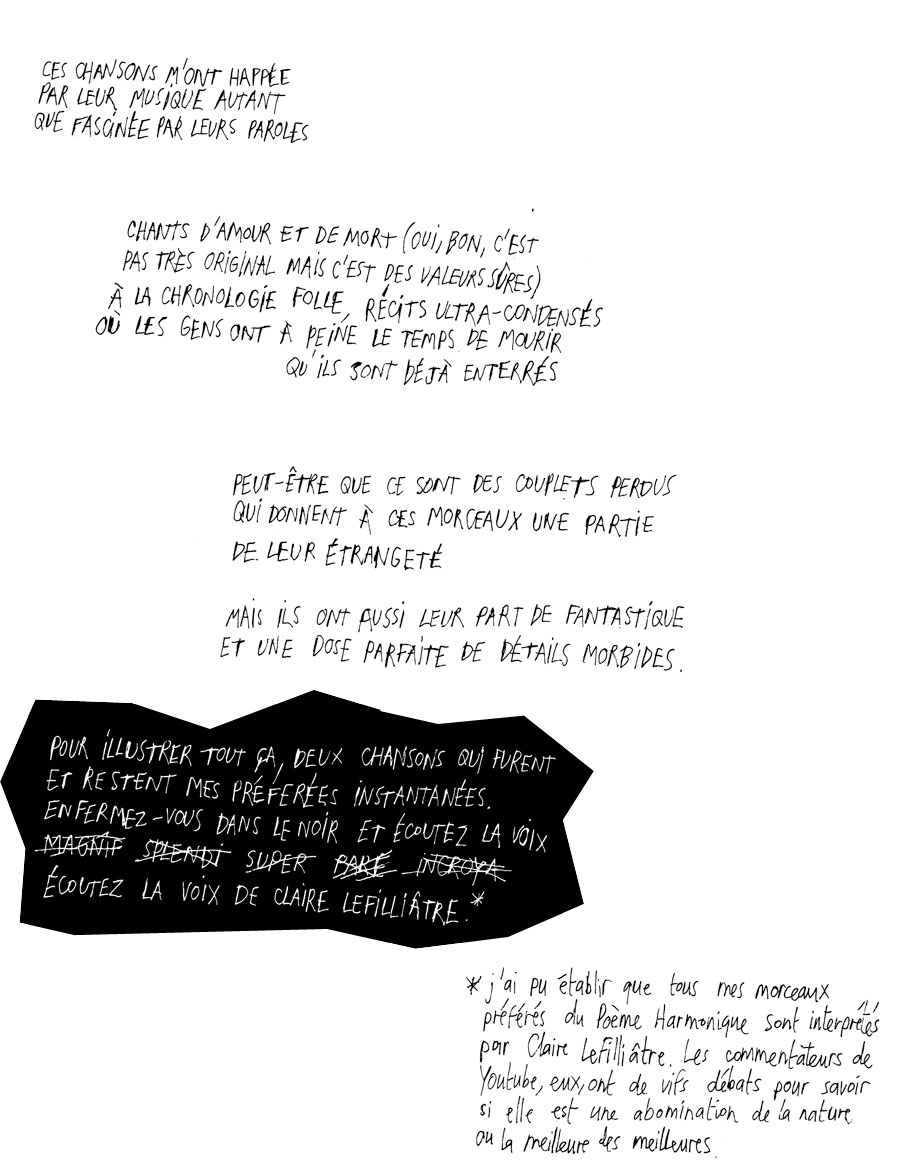 CES CHANSONS M'ONT HAPPÉE
PAR LEUR MUSIQUE AUTANT
QUE FASCINÉE PAR LEURS PAROLES
CHANTS D'AMOUR ET DE MORT (OUI, BON, C'EST
PAS TRÈS ORIGINAL MAIS C'EST DES VALEURS SÛRES)
À LA CHRONOLOGIE FOLLE, RÉCITS ULTRA-CONDENSÉS
OÙ LES GENS ONT À PEINE LE TEMPS DE MOURIR
QU'ILS SONT DÉJÀ ENTERRÉS
PEUT-ÊTRE QUE CE SONT DES COUPLETS PERDUS
QUI DONNENT À CES MORCEAUX UNE PARTIE
DE LEUR ÉTRANGETÉ
MAIS ILS ONT AUSSI LEUR PART DE FANTASTIQUE
ET UNE DOSE PARFAITE DE DÉTAILS MORBIDES.
POUR ILLUSTRER TOUT ÇA, DEUX CHANSONS QUI FURENT
ET RESTENT MES PRÉFÉRÉES INSTANTANÉES.
ENFERMEZ-VOUS DANS LE NOIR ET ÉCOUTEZ LA VOIX
MAGNIF SPLENDI SUPER BARÉ INCROYA
ÉCOUTEZ LA VOIX DE CLAIRE LEFILLIÂTRE.*
* j'ai pu établir que tous mes morceaux
préférés du Poème Harmonique sont interprétés
par Claire Lefilliâtre. Les commentateurs de
Youtube, eux, ont de vifs débats pour savoir
si elle est une abomination de la nature
ou la meilleure des meilleures.